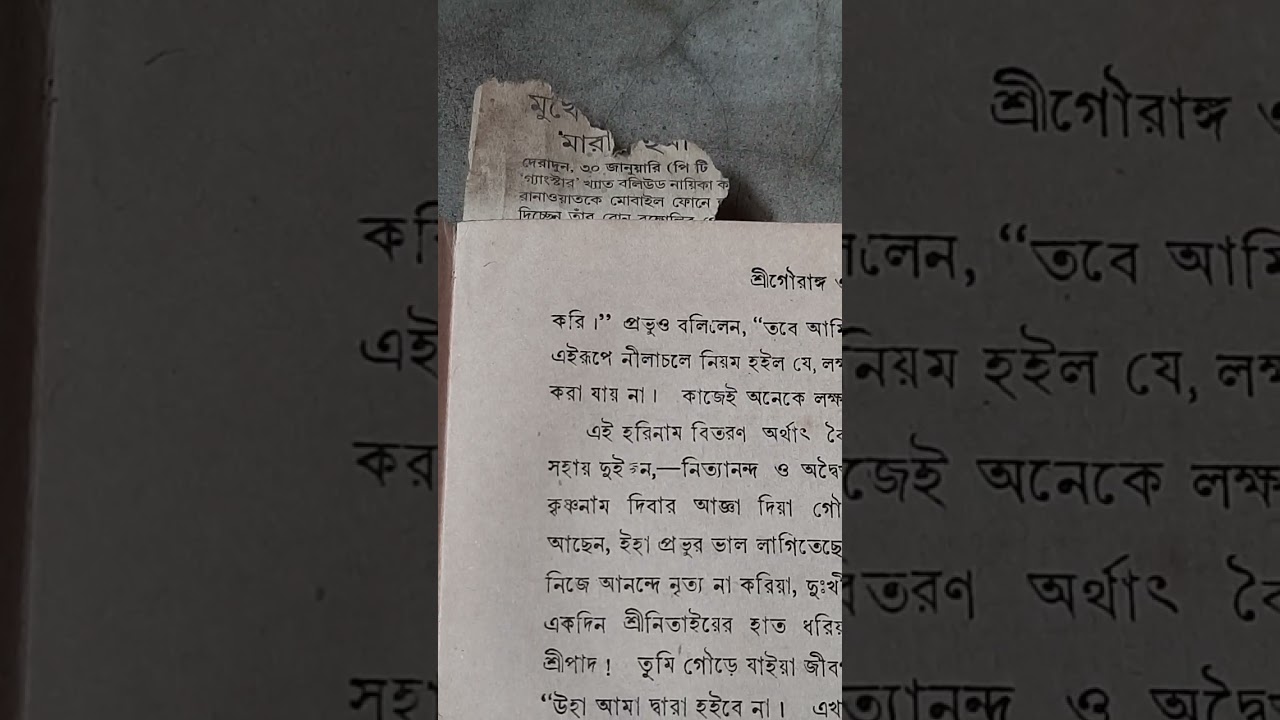 মুখে
দেরাদুন, ৩০ জানুয়ারি (পি টি
'গ্যাংস্টার' খ্যাত বলিউড নায়িকা ক
রানাওয়াতকে মোবাইল ফোনে
দিচ্ছেন তাঁর বোন
শ্রীগৌরাঙ্গ
করি।” প্রভুও বলিলেন, “তবে আমি
এইরূপে নীলাচলে নিয়ম হইল যে, লক্ষ
করা যায় না। কাজেই অনেকে লক্ষ
এই হরিনাম বিতরণ অর্থাৎ বৈ
সহায় দুইজন,—নিত্যানন্দ ও অদ্বৈত
কৃষ্ণনাম দিবার আজ্ঞা দিয়া গৌ
আছেন, ইহা প্রভুর ভাল লাগিতেছে
নিজে আনন্দে নৃত্য না করিয়া, দুঃখী
একদিন শ্রীনিতাইয়ের হাত ধরিয়
শ্রীপাদ! তুমি গৌড়ে যাইয়া জীব
“উহা আমা দ্বারা হইবে না। এখ